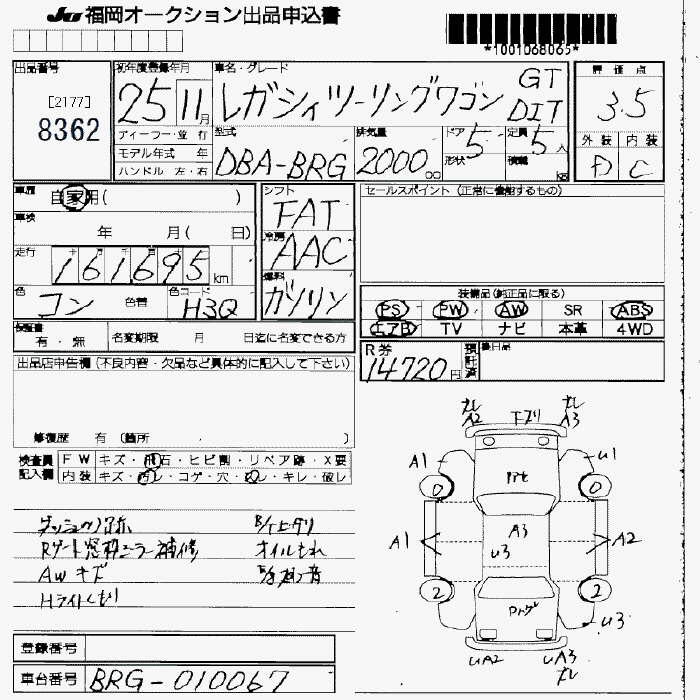 JU 福岡オークション出品申込書
*1001068065*
出品番号
[2177]
8362
初年度登録年月
25 11月
車名・グレード
レガシィツーリングワゴン GT DIT
評価点
3.5
外装 内装
D C
ディーラー・並行
モデル年式 年
ハンドル 左・右
型式
DBA-BRG
排気量
2000 cc
ドア 5
形状
定員 5人
積載 kg
車歴 自家用( )
車検 年 月( 日)
走行 161695 km
色 コン 色替
色コード H3Q
シフト
FAT
冷房
AAC
燃料
ガソリン
セールスポイント (正常に機能するもの)
装備品(純正品に限る)
PS PW AW SR ABS
エアB TV ナビ 本革 4WD
検査書
有・無
名変期限 月 日迄に名変できる方
R券
14720円
預託済
後日品
出品店申告欄 (不良内容・欠品など具体的に記入して下さい)
修復歴 有 (箇所 )
検査員記入欄
FW キズ・飛石・ヒビ割・リペア跡・X要
内装 キズ・汚レ・コゲ・穴・切レ・キレ・破レ
A2 下ブリ A3
A1 U1
0 0
A3
U3
A1 A2
2 2
U3
UA2 UA3
AWキズ
オイルもれ
Hライトくもり
登録番号
車台番号 BRG-010067